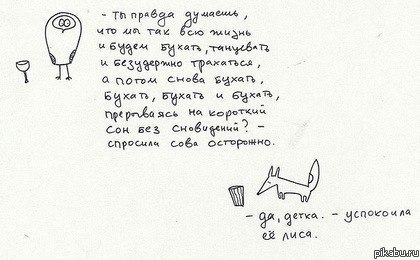 - ты правда думаешь,
что мы так всю жизнь
и будем бухать, танцевать
и безудержно трахаться,
а потом снова бухать,
бухать, бухать и бухать,
прерываясь на короткий
сон без сновидений? -
спросила сова осторожно.
- да, детка. - успокоила
её лиса.
pikabu.ru